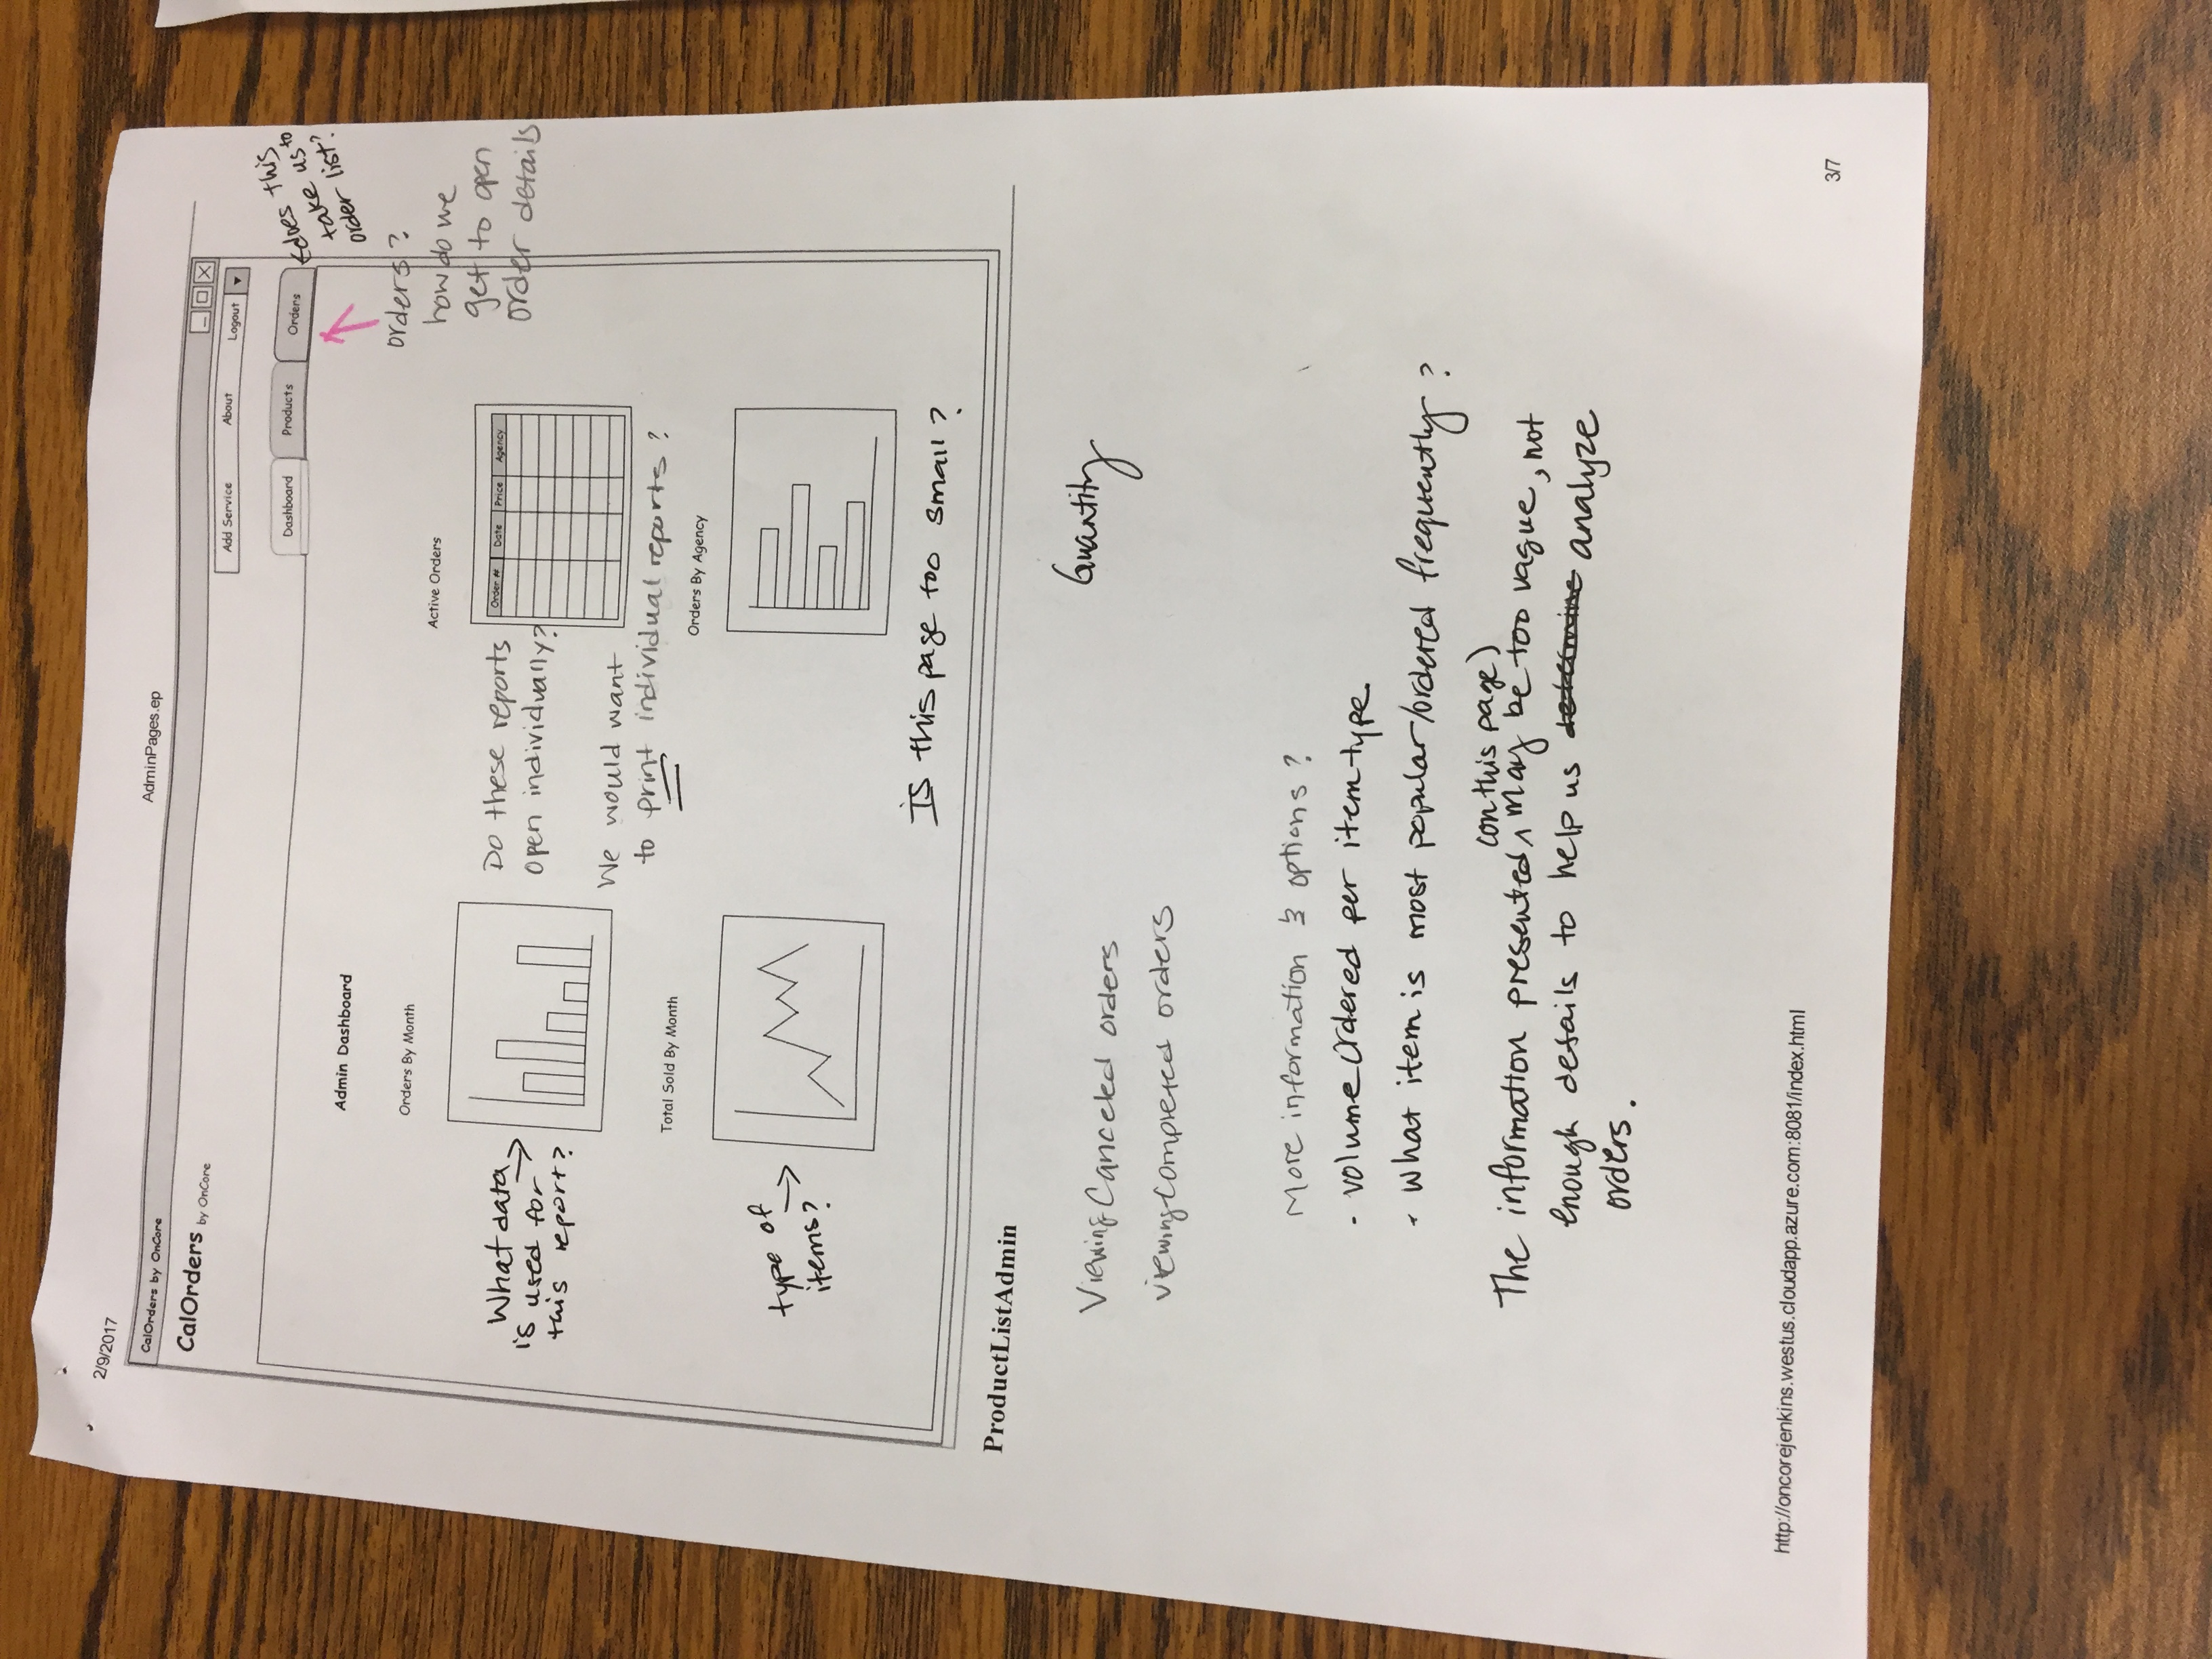 2/9/2017
AdminPages.ep
CalOrders by OnCore
CalOrders by OnCore
Add Service About Logout
Dashboard Products Orders
←does this
take us to
order list?
Admin Dashboard
orders?
how do we
get to open
order details
Orders By Month
Active Orders
What data
is used for
this report?
Do these reports
open individually?
Order # Date Price Agency
We would want
to print individual reports?
Total Sold By Month
Orders By Agency
type of
items?
Is this page too small?
ProductListAdmin
Quantity
Viewing Canceled orders
viewing completed orders
More information & options?
· volume ordered per item type
· What item is most popular/ordered frequently?
(on this page)
The information presented ^ may be too vague, not
enough details to help us determine analyze
orders.
http://oncorejenkins.westus.cloudapp.azure.com:8081/index.html
3/7